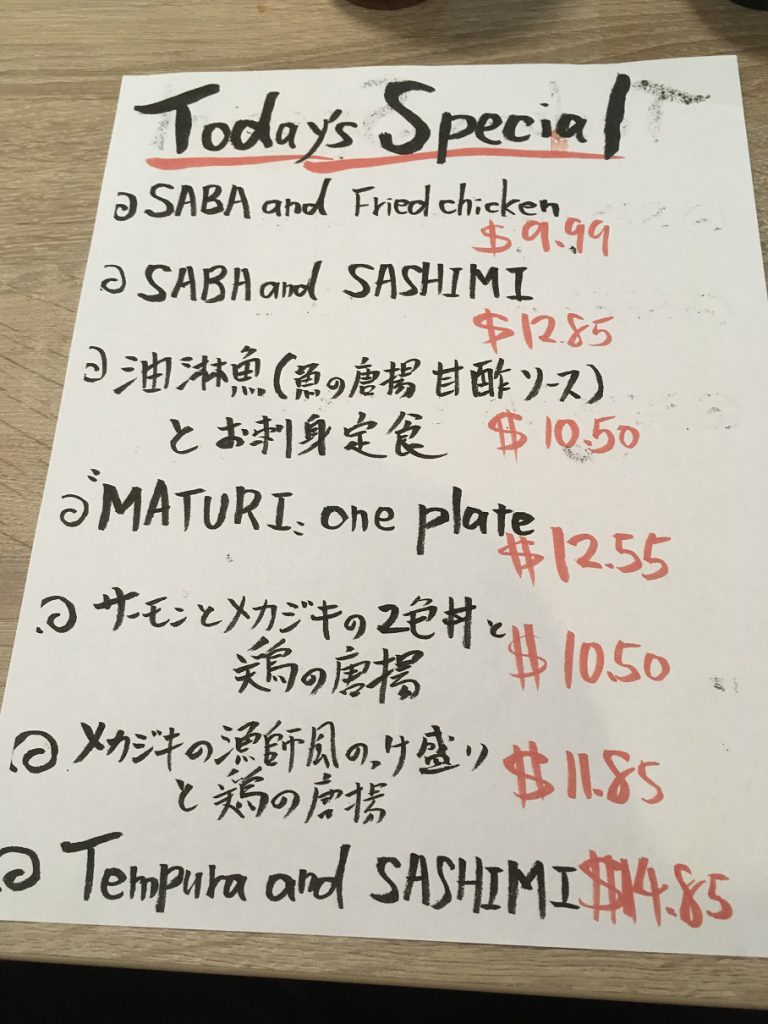 Today's Special
SABA and Fried chicken
$9.99
SABA and SASHIMI
$12.85
油淋魚(魚の唐揚 甘酢ソース)
とお刺身定食 $10.50
"MATURI" one plate
$12.55
サーモンとメカジキの2色丼と
鶏の唐揚 $10.50
メカジキの漁師風のっけ盛り
と鶏の唐揚 $11.85
Tempura and SASHIMI $14.85